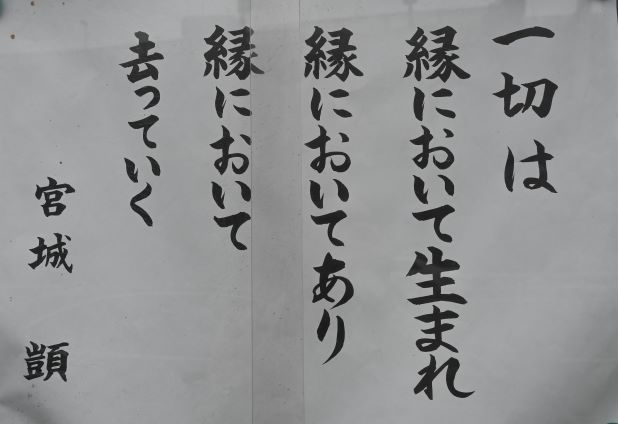 一切は
縁において生まれ
縁においてあり
縁において
去っていく
宮城 顗